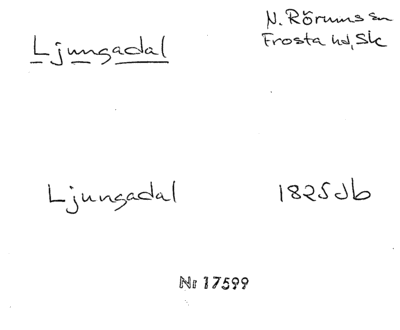 Ljungadal
N. Rörums sn
Frosta hd, Sk
Ljungadal
1825 Jb
Nr 17599